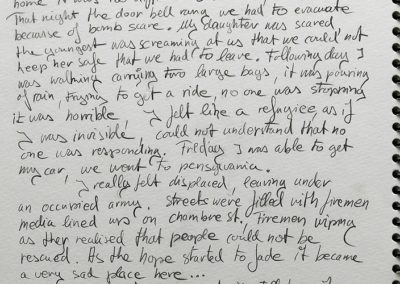 home. It was
That night the door bell rang we had to evacuate
because of bomb scare. My daughter was scared
the youngest was screaming at us that we could not
keep her safe that we had to leave. Following day I
was walking carrying two large bags, it was pouring
of rain, trying to get a ride, no one was stopping
it was horrible, I felt like a refagiee, as if
I was invisible, could not understand that no
one was responding. Friday I was able to get
my car, we went to pensylvania.
I really felt displaced, leaving under
an occupied army. Streets were filled with firemen
media lined up on chambre st. Firemen wiping
as they realised that people could not be
rescued. As the hope started to fade it became
a very sad place here...